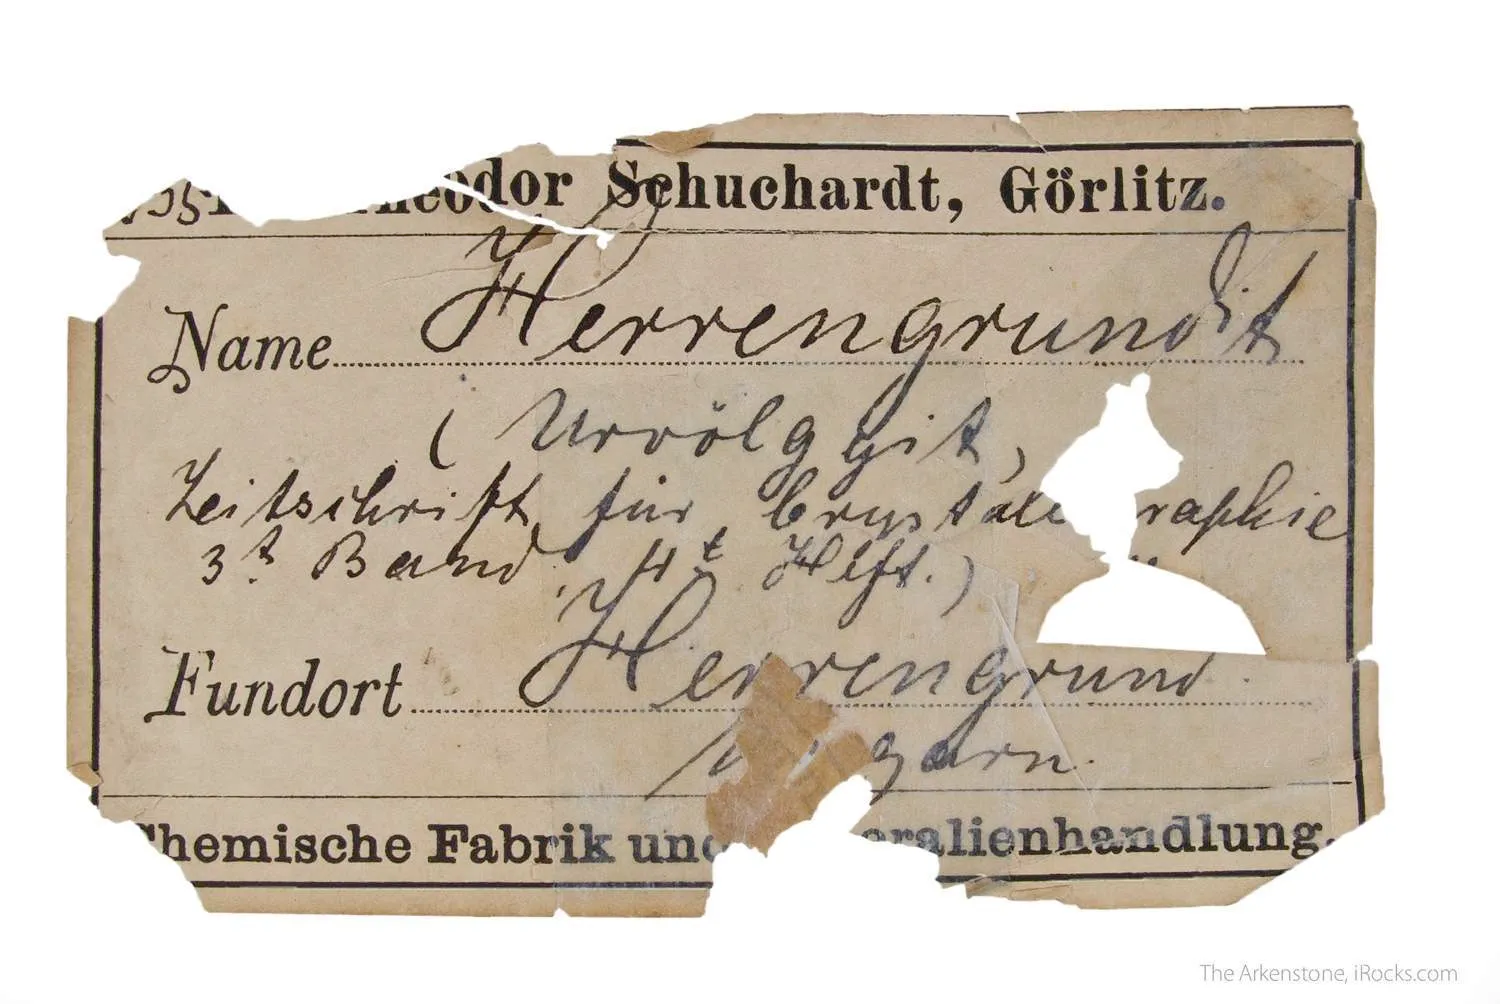 Theodor Schuchardt, Görlitz.
Name Herrengrundit
(Urvölggit,
Zeitschrift für Crystallographie
3t Band 4t Heft.)
Fundort Herrengrund.
Ungarn.
Chemische Fabrik und Mineralienhandlung.
The Arkenstone, iRocks.com